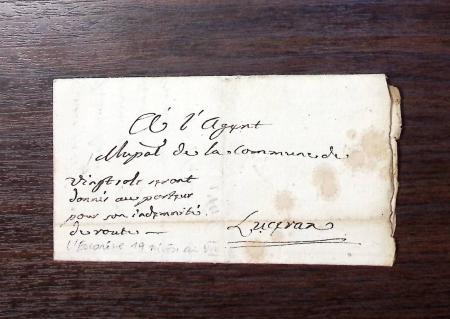 A l'Agent
Mupal de la Commune de
Vingt sols seront
donnés au porteur
pour son indemnité
de route
Luceran
l'Escarène 19 nivôse an